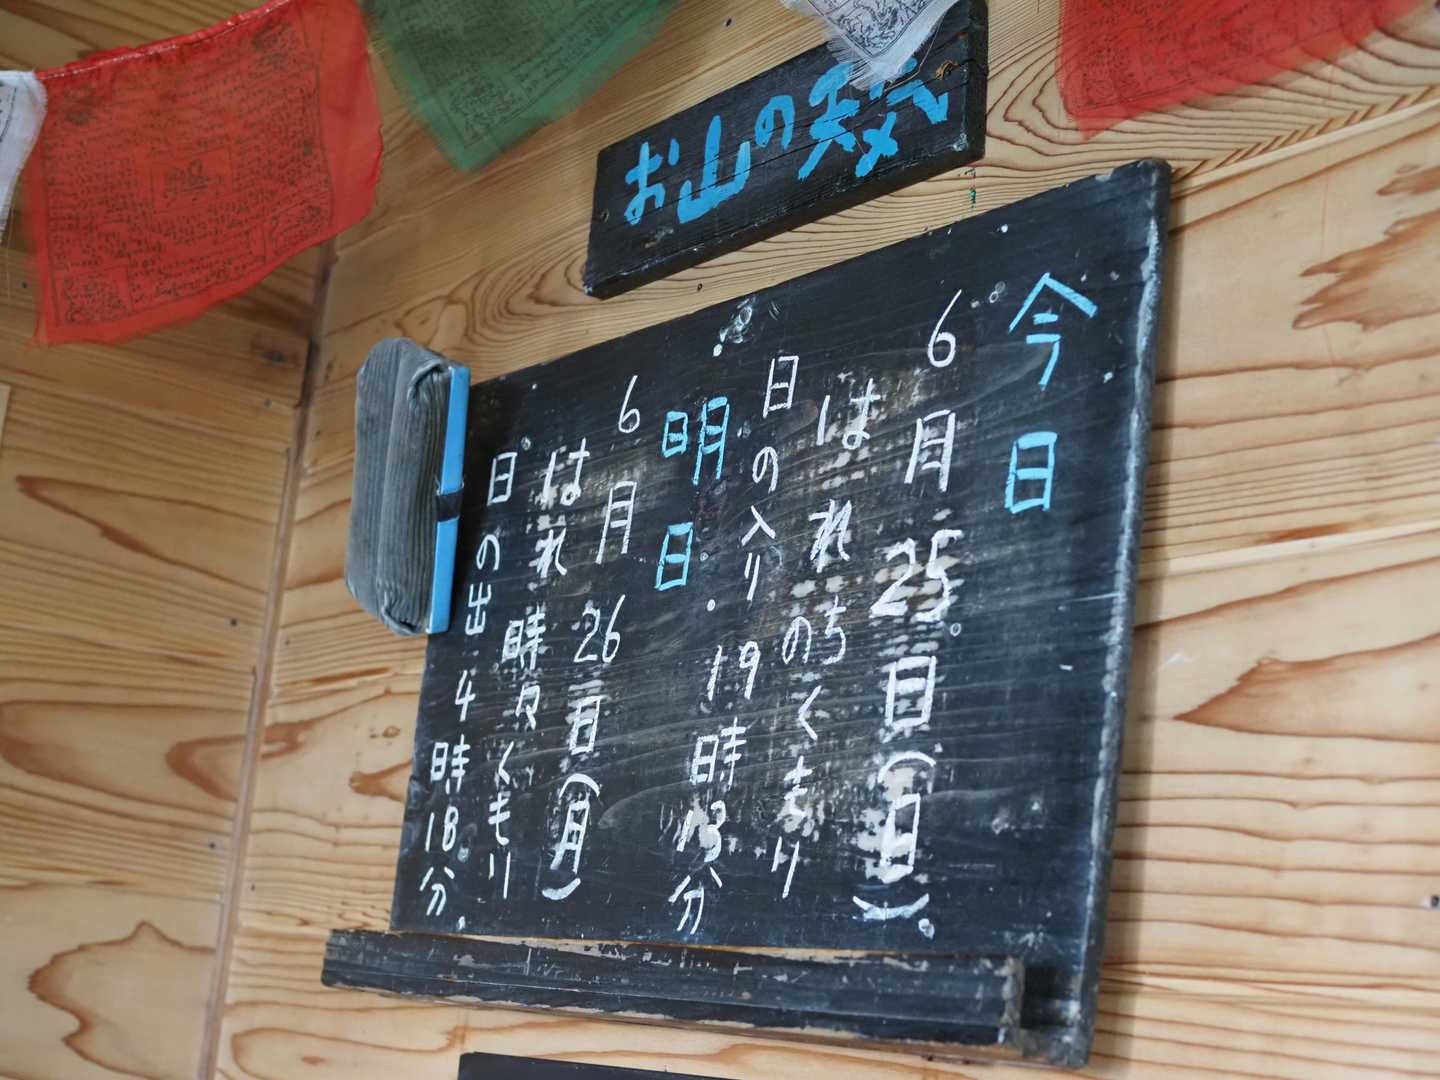 お山の天気
今日
6月25日(日)
はれ のち くもり
日の入り 19時13分
明日
6月26日(月)
はれ 時々 くもり
日の出 4時18分